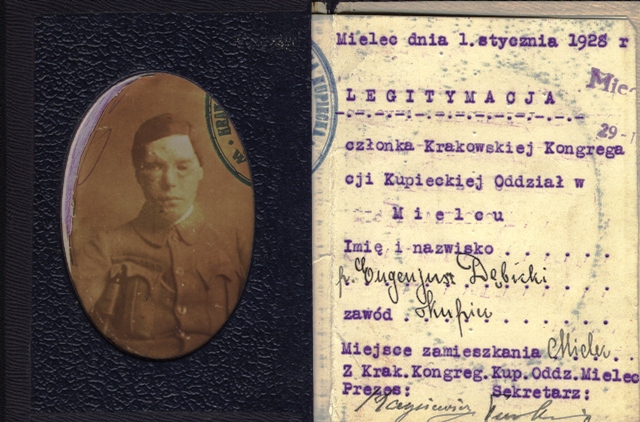 Mielec dnia 1.stycznia 1928 r
Mie
LEGITYMACJA
29-
członka Krakowskiej Kongrega
cji Kupieckiej Oddział w
Mielcu
Imię i nazwisko . . . . . . .
p. Eugenjusz Dębicki
zawód . kupiec . . . . . .
Miejsce zamieszkania Mielec . .
Z Krak.Kongreg.Kup.Oddz.Mielec
Prezes: Sekretarz: